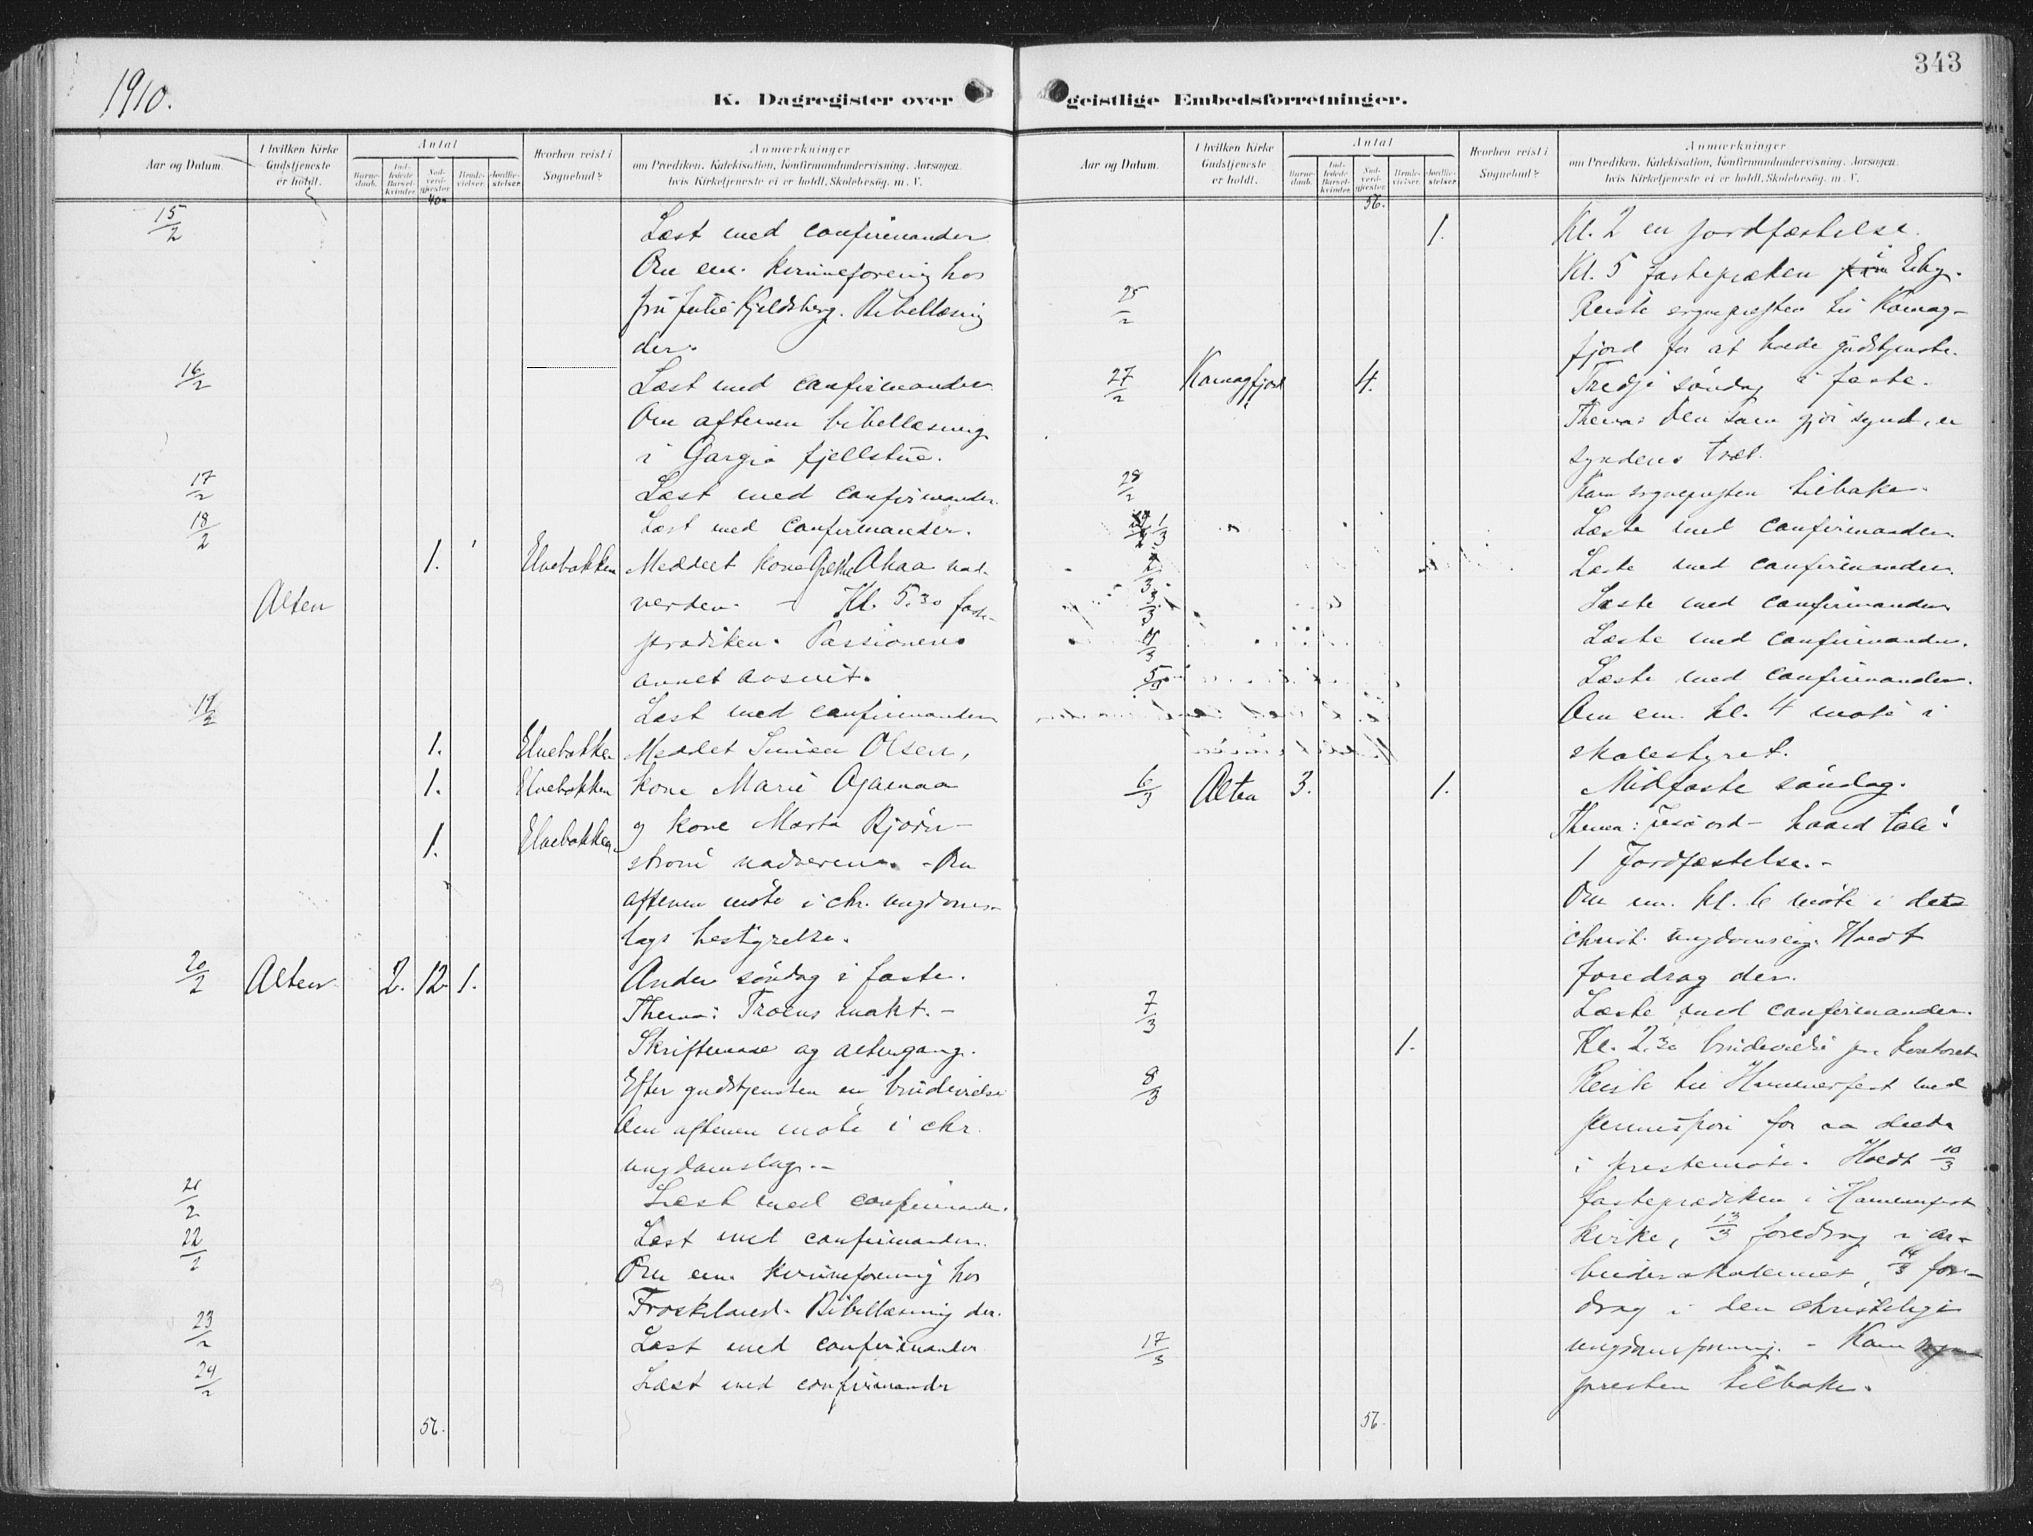 1910.
343
K. Dagregister over geistlige Embedsforretninger.
Aar og Datum.
I hvilken Kirke Gudstjeneste er holdt.
Antal
Barnedaab.
Indledede Barselkvinder.
Nadverdgjester.
Brudevielser.
Jordfæstelser.
Hvorhen reist i Sognebud?
Anmærkninger
om Prædiken, Katekisation, Konfirmandundervisning, Aarsagen,
hvis Kirketjeneste ei er holdt, Skolebesøg. m. V.
40.
15/2 Læst med confirmander
Om em. kvinneforening hos
fru Julie Kjeldsberg. Bibellæsning
der.
16/2 Læst med confirmander
Om aftenen bibellæsning
i Gargia fjellstue.
17/2 Læst med confirmander.
18/2 Læst med confirmander.
1. Elvebakken Meddelt kone Grethe Akaa nad-
Alten verden. – Kl. 5.30 faste-
prædiken. Passionens
annet avsnit.
19/2 Læst med confirmander
1. Elvebakken Meddelt Simen Olsen,
1. Elvebakken kone Marie
1. Elvebakken og kone Marta Bjørn-
strøm nadveren. – Om
aftenen møte i chr. ungdoms-
lags bestyrelse.
20/2 Alten 2. 12. 1. Anden søndag i faste.
Thema: Troens makt. –
Skriftemaal og altergang.
Efter gudstjensten en brudevielse
Om aftenen møte i chr.
ungdomslag. –
21/2 Læst med confirmander.
22/2 Læst med confirmander.
Om em. kvinneforening hos
Froskeland. Bibellæsning der.
23/2 Læst med confirmander
24/2 Læst med confirmander
56.
Aar og Datum.
I hvilken Kirke Gudstjeneste er holdt.
Antal
Barnedaab.
Indledede Barselkvinder.
Nadverdgjester.
Brudevielser.
Jordfæstelser.
Hvorhen reist i Sognebud?
Anmærkninger
om Prædiken, Katekisation, Konfirmandundervisning, Aarsagen,
hvis Kirketjeneste ei er holdt, Skolebesøg. m. V.
56.
1. Kl. 2 en jordfæstelse.
Kl. 5 fastepræken i Elvby.
25/2 Reiste sognepresten til Komag-
fjord for at holde gudstjenste.
27/2 Komagfjord 4. Tredje søndag i faste.
Thema: Den som gjør synd, er
syndens træl.
28/2 Kom sogneprsten tilbake.
1/3 Læste med confirmander.
2/3 Læste med confirmander.
3/3 Læste med confirmander
4/3 Læste med confirmander.
5/3 Læste med confirmander.
Om em. kl. 4 møte i
skolestyret.
6/3 Alten 3. 1. Midfaste søndag.
Thema: Jesu ord – haard tale!
1 Jordfæstelse. –
Om em. kl. 6 møte i det
christ. ungdomslag. Holdt
foredrag der.
7/3 Læste med confirmander.
1. Kl. 2.30 brudevielse paa kontoret
8/3 Reiste til Hammerfest med
for aa delta
i prestemøte. Holdt 10/3
fasteprædiken i Hammerfest
kirke, 13/3 foredrag i ar-
beiderakademiet, 14/3 fore-
drag i den christelige
17/3 ungdomsforening. – Kom sogne-
presten tilbake.
56.